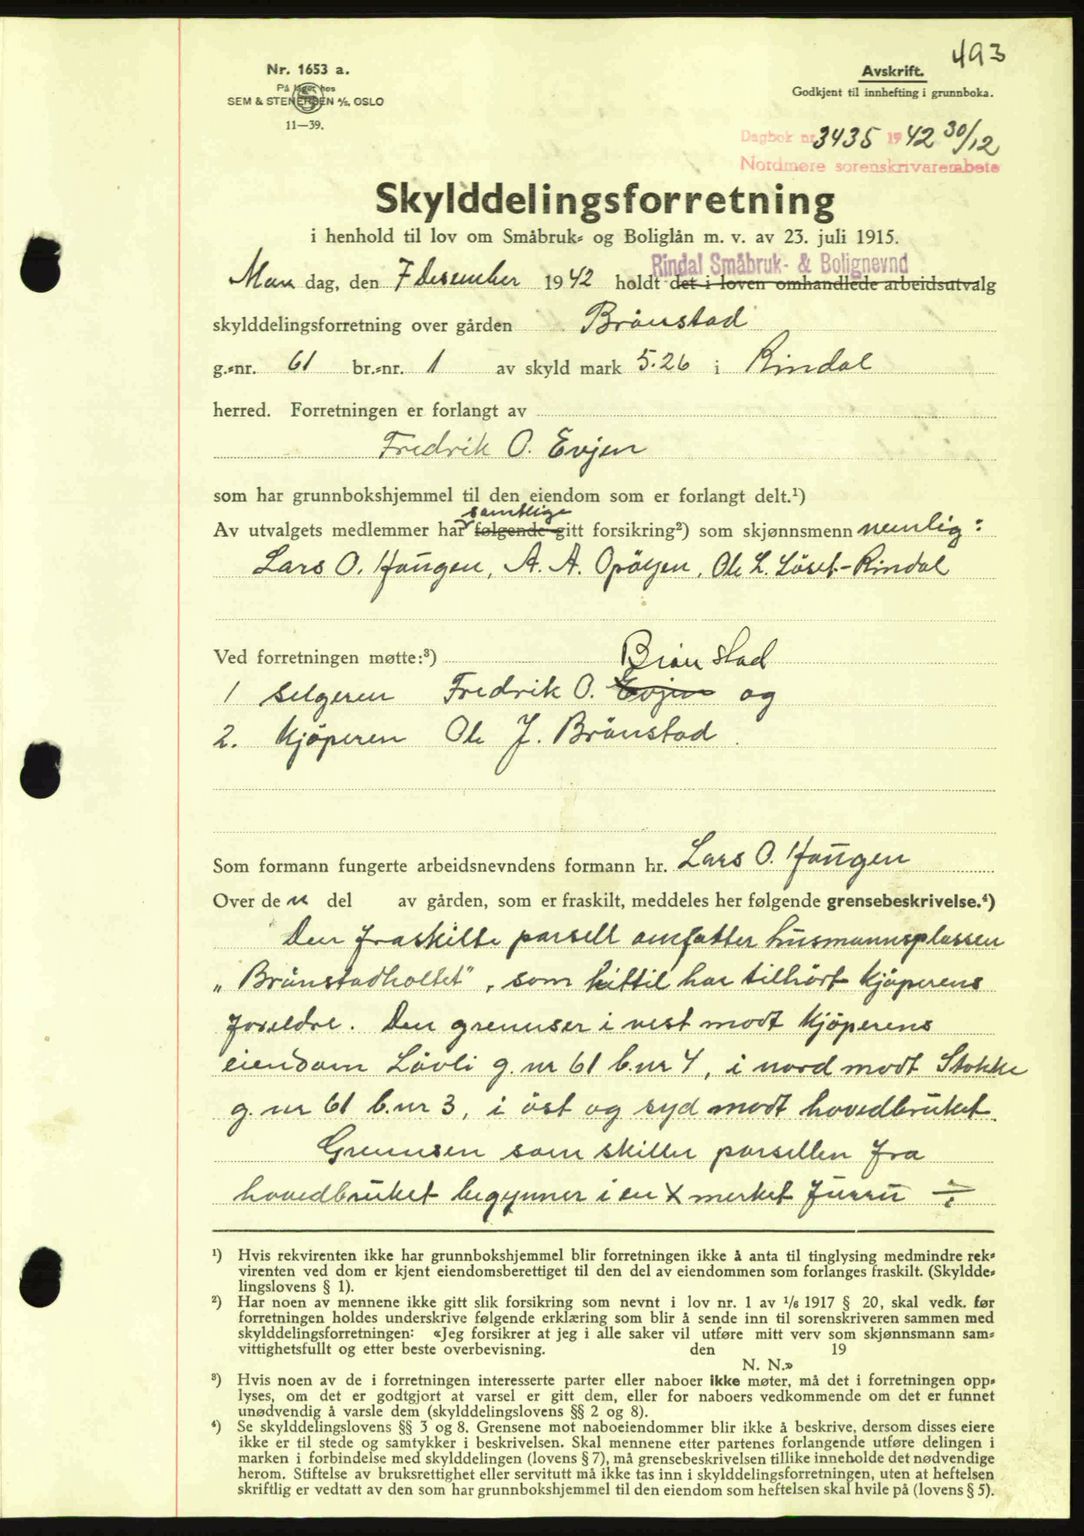 493
Nr. 1653 a.
På lager hos
SEM & STENERSEN A/S, OSLO
11—39.
Avskrift.
Godkjent til innhefting i grunnboka.
Dagbok nr. 3435 1942 30/12
Nordmøre sorenskrivarembete
Skylddelingsforretning
i henhold til lov om Småbruk- og Boliglån m. v. av 23. juli 1915.
Rindal Småbruk- & Bolignevnd
Man dag, den 7 Desember 1942 holdt det i loven omhandlede arbeidsutvalg
skylddelingsforretning over gården Brönstad
g.-nr. 61 br.-nr. 1 av skyld mark 5.26 i Rindal
herred. Forretningen er forlangt av
Fredrik O. Evjen
som har grunnbokshjemmel til den eiendom som er forlangt delt.¹)
samtlige
Av utvalgets medlemmer har følgende gitt forsikring²) som skjønnsmenn nemlig:
Lars O. Haugen, A. A. Opöyen, Ole L. Löset-Rindal
Ved forretningen møtte:³) Brönstad
1 Selgeren Fredrik O. Evjen og
2. Kjöperen Ole J. Brönstad.
Som formann fungerte arbeidsnevndens formann hr. Lars O. Haugen
Over den del av gården, som er fraskilt, meddeles her følgende grensebeskrivelse.⁴)
Den fraskilte parsell omfatter husmannsplassen
„Brönstadholtet", som hittil har tilhört kjöperens
foreldre. Den grenser i vest modt kjöperens
eiendom Lövli g. nr 61 b.nr 4, i nord modt Stokke
g. nr 61 b.nr 3, i öst og syd modt hovedbruket.
Grensen som skiller parsellen fra
hovedbruket begynner i en X merket furu ÷
¹) Hvis rekvirenten ikke har grunnbokshjemmel blir forretningen ikke å anta til tinglysing medmindre rek-
virenten ved dom er kjent eiendomsberettiget til den del av eiendommen som forlanges fraskilt. (Skyldde-
lingslovens § 1).
²) Har noen av mennene ikke gitt slik forsikring som nevnt i lov nr. 1 av 1/6 1917 § 20, skal vedk. før
forretningen holdes underskrive følgende erklæring som blir å sende inn til sorenskriveren sammen med
skylddelingsforretningen: «Jeg forsikrer at jeg i alle saker vil utføre mitt verv som skjønnsmann sam-
vittighetsfullt og etter beste overbevisning. den 19
N. N.»
³) Hvis noen av de i forretningen interesserte parter eller naboer ikke møter, må det i forretningen opp-
lyses, om det er godtgjort at varsel er gitt dem, eller for naboers vedkommende om det er funnet
unødvendig å varsle dem (skylddelingslovens §§ 2 og 8).
⁴) Se skylddelingslovens §§ 3 og 8. Grensene mot naboeiendommer blir ikke å beskrive, dersom disses eiere
ikke er til stede og samtykker i beskrivelsen. Skal mennene etter partenes forlangende utføre delingen i
marken i forbindelse med skylddelingen (lovens § 7), må grensebeskrivelsen tillike inneholde det nødvendige
herom. Stiftelse av bruksrettighet eller servitutt må ikke tas inn i skylddelingsforretningen, uten at heftelsen
skriftlig er vedtatt av den som har grunnbokshjemmel til den eiendom som heftelsen skal hvile på (lovens § 5).